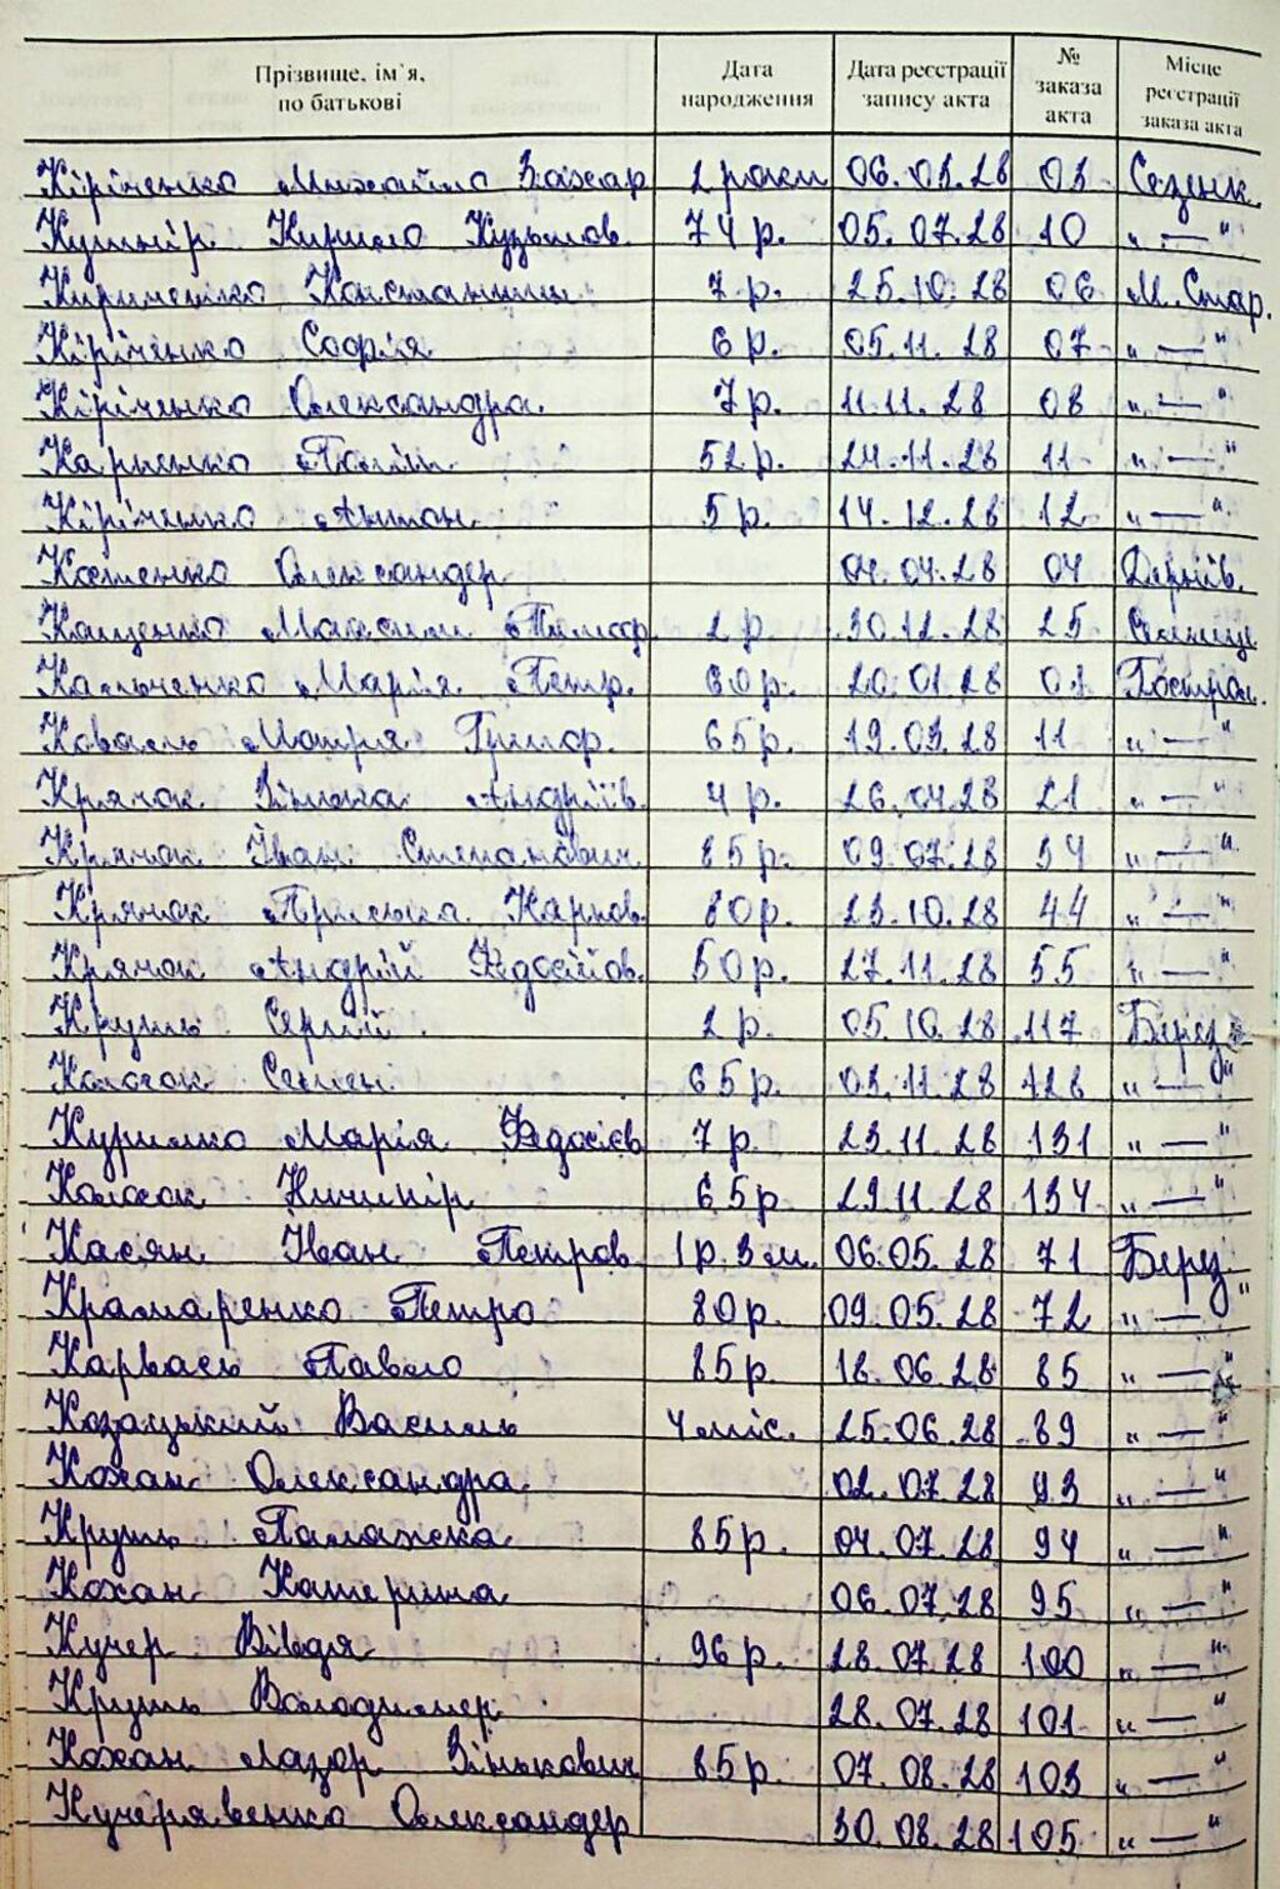 Прізвище, ім`я, по батькові Дата народження Дата реєстрації запису акта № заказа акта Місце реєстрації заказа акта
Кіріченко Михайло Захар 2 роки 06.03.28 03 Сезенк.
Кушнір Кирило Кузьмов. 74 р. 05.07.28 10 „ — "
Кириченко Констянтин 7 р. 25.10.28 06 М. Стар.
Кіріченко Софія 6 р. 05.11.28 07 „ — "
Кіріченко Олександра. 7 р. 11.11.28 08 „ — "
Карпенко 52 р. 24.11.28 11 „ — "
Кіріченко Антон. 5 р. 14.12.28 12 „ — "
Костенко Олександер 04.04.28 04
Кащенко Максим Тимоф. 2 р. 30.12.28 25
Кальченко Марія Петр. 60 р. 20.01.28 01
Коваль Мотря Григор. 65 р. 19.03.28 11 „ — "
Крячок Зінька Андріїв. 4 р. 26.04.28 21 „ — "
Крячок Іван Степанович 85 р. 09.07.28 34 „ — "
Крячок Пріська Карпов. 80 р. 23.10.28 44 „ — "
Крячок Андрій Федосійов. 50 р. 27.11.28 55 „ — "
Круть Сергій 2 р. 05.10.28 117 Берез
Колосок Семен 65 р. 03.11.28 128 „ — "
Курилко Марія Федосієв 7 р. 23.11.28 131 „ — "
Колосок Ничипір 65 р 29.11.28 134 „ — "
Касян Іван Петров 1 р. 3 м. 06.05.28 71 Берез.
Крамаренко Петро 80 р. 09.05.28 72 „ — "
Карвась Павло 85 р. 18.06.28 85 „ — "
Козацький Василь 4 міс. 25.06.28 89 „ — "
Кохан Олександра. 02.07.28 93 „ — "
Круть Палажка 85 р. 04.07.28 94 „ — "
Кохан Катерина 06.07.28 95 „ — "
Кучер Вівдя 96 р. 28.07.28 100 „ — "
Круть Володимер. 28.07.28 101 „ — "
Кохан Лазор Зінькович 85 р. 07.08.28 103 „ — "
Кучерявенко Олександер 30.08.28 105 „ — "